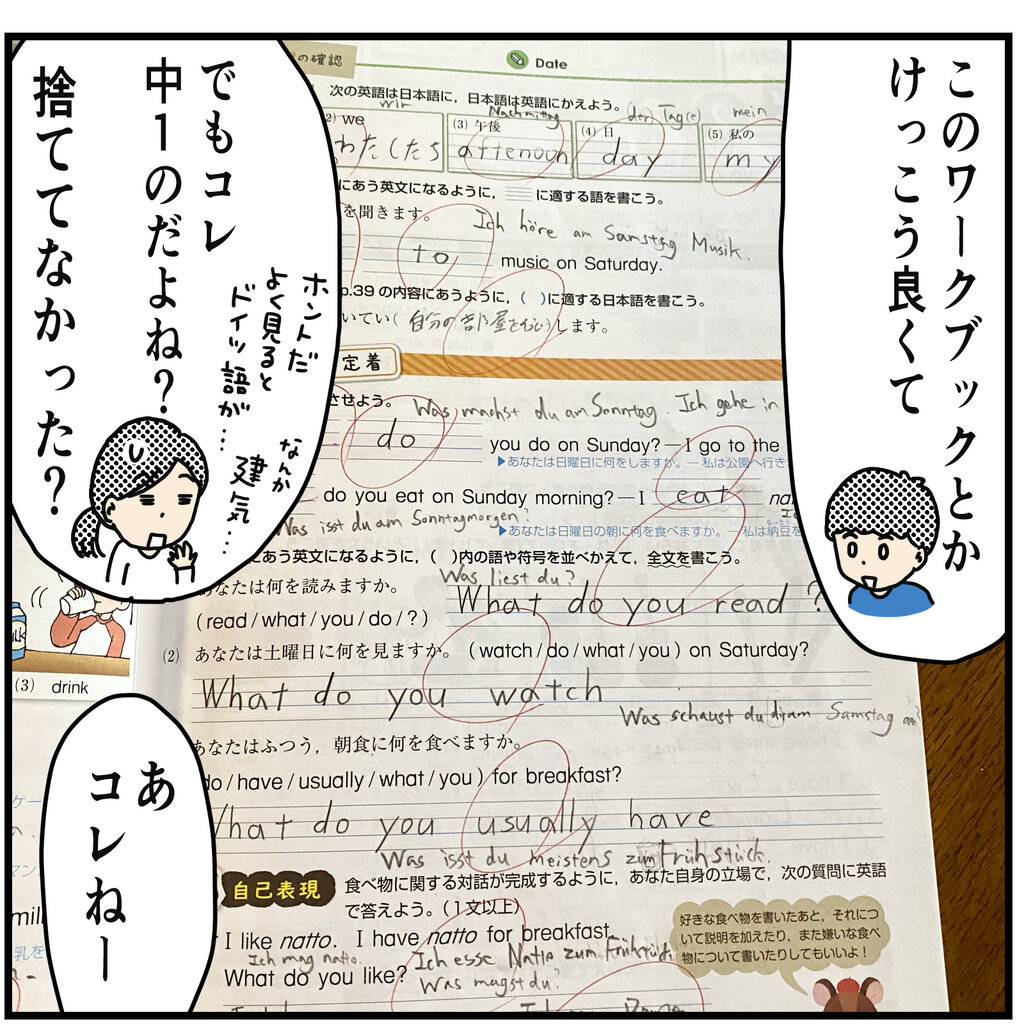 このワークブックとか
けっこう良くて
でもコレ
中1のだよね?
捨ててなかった?
ホントだ
よく見ると
ドイツ語が…
なんか
健気…
あ
コレねー
の確認
Date
次の英語は日本語に,日本語は英語にかえよう。
wir
Nachmittag
(der) Tag(e)
mein
2) we
(3) 午後
(4) 日
(5) 私の
わたしたち
afternoon
day
my
にあう英文になるように, に適する語を書こう。
を聞きます。
Ich höre am Samstag Musik.
to music on Saturday.
p.39 の内容にあうように,( )に適する日本語を書こう。
いてい( )します。
定着
させよう。
Was machst du am Sonntag. Ich gehe in
do you do on Sunday? — I go to the
▶あなたは日曜日に何をしますか。— 私は公園へ行き
do you eat on Sunday morning? — I eat na
Was isst du am Sonntagmorgen?
▶あなたは日曜日の朝に何を食べますか。— 私は納豆を
にあう英文になるように,( )内の語や符号を並べかえて,全文を書こう。
あなたは何を読みますか。
Was liest du?
(read / what / you / do / ?)
What do you read ?
(2) あなたは土曜日に何を見ますか。(watch / do / what / you) on Saturday?
What do you watch
Was schaust du dir am Samstag an?
(3) drink
あなたはふつう,朝食に何を食べますか。
do / have / usually / what / you) for breakfast?
What do you usually have
Was isst du meistens zum Frühstück.
自己表現
食べ物に関する対話が完成するように,あなた自身の立場で,次の質問に英語
で答えよう。(1文以上)
I like natto. I have natto for breakfast.
Ich mag natto. Ich esse Natto zum Frühstück.
What do you like?
Was magst du?
好きな食べ物を書いたあと,それにつ
いて説明を加えたり,また嫌いな食べ
物について書いたりしてもいいよ!
milk
乳を